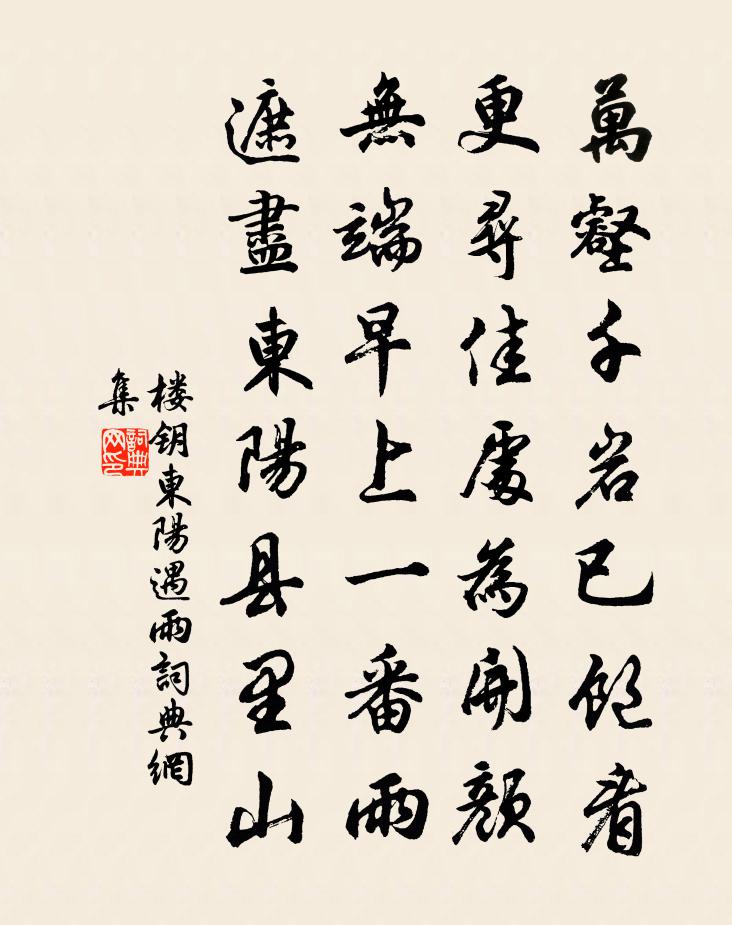 萬壑千岩已飽看
更尋佳處為開顏
無端早上一番雨
遮盡東陽县里山
楼钥東陽遇雨詞典網
集
詞典
网印